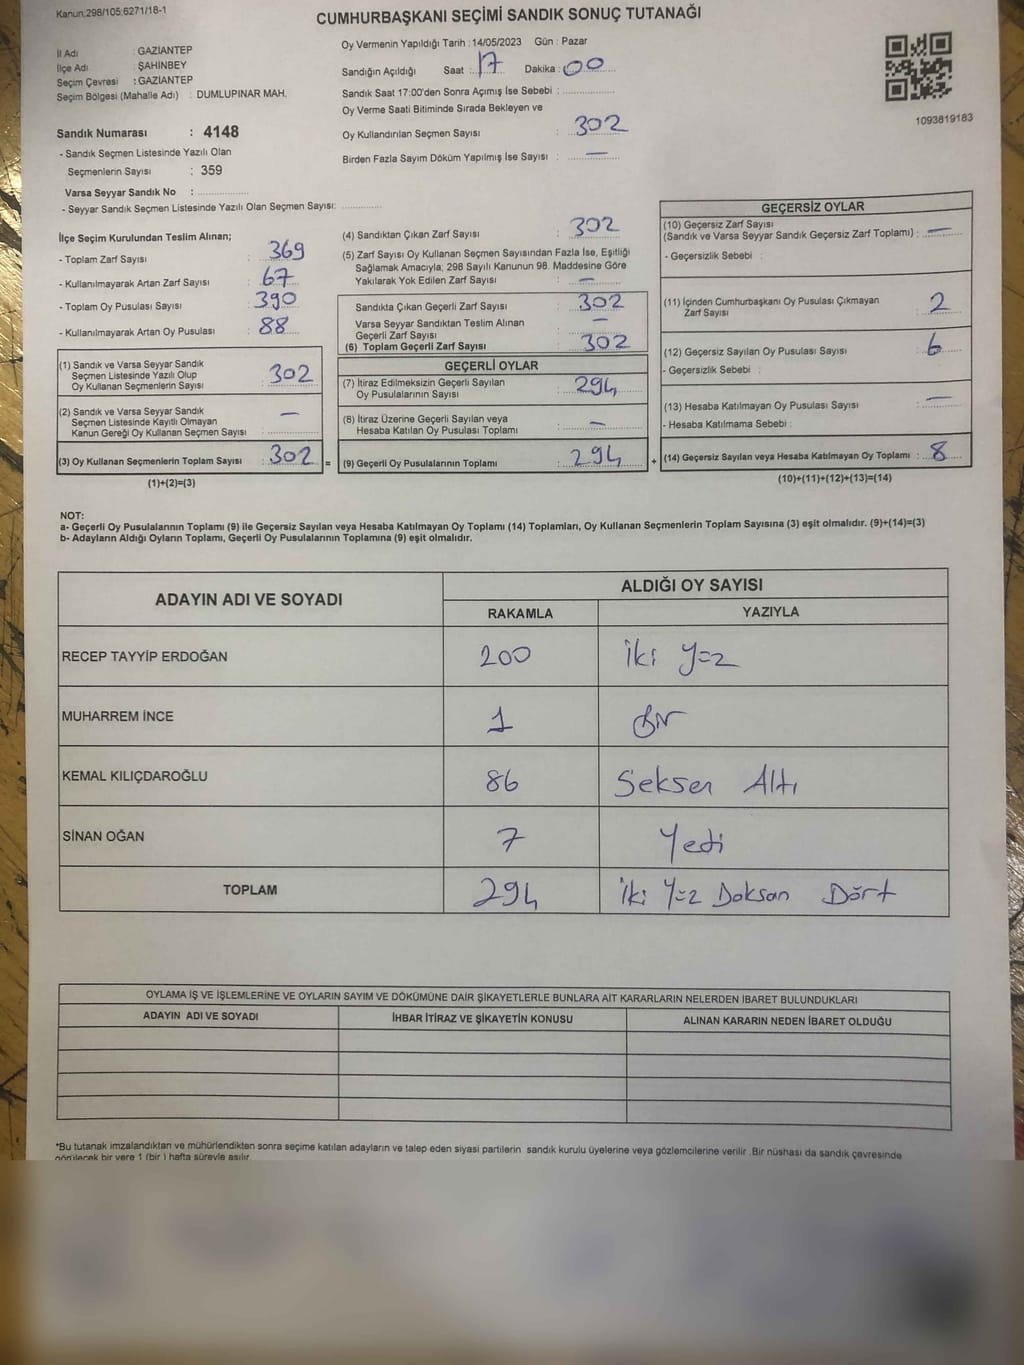 Kanun:298/105;6271/18-1
CUMHURBAŞKANI SEÇİMİ SANDIK SONUÇ TUTANAĞI
İl Adı : GAZİANTEP
İlçe Adı : ŞAHİNBEY
Seçim Çevresi : GAZİANTEP
Seçim Bölgesi (Mahalle Adı) : DUMLUPINAR MAH.
Sandık Numarası : 4148
- Sandık Seçmen Listesinde Yazılı Olan
Seçmenlerin Sayısı : 359
Varsa Seyyar Sandık No :
- Seyyar Sandık Seçmen Listesinde Yazılı Olan Seçmen Sayısı:
Oy Vermenin Yapıldığı Tarih : 14/05/2023 Gün : Pazar
Sandığın Açıldığı Saat : 17 Dakika : 00
Sandık Saat 17:00'den Sonra Açımış İse Sebebi :
Oy Verme Saati Bitiminde Sırada Bekleyen ve
Oy Kullandırılan Seçmen Sayısı : 302
Birden Fazla Sayım Döküm Yapılmış İse Sayısı : —
1093819183
İlçe Seçim Kurulundan Teslim Alınan;
- Toplam Zarf Sayısı : 369
- Kullanılmayarak Artan Zarf Sayısı : 67
- Toplam Oy Pusulası Sayısı : 390
- Kullanılmayarak Artan Oy Pusulası : 88
(1) Sandık ve Varsa Seyyar Sandık
Seçmen Listesinde Yazılı Olup
Oy Kullanan Seçmenlerin Sayısı : 302
(2) Sandık ve Varsa Seyyar Sandık
Seçmen Listesinde Kayıtlı Olmayan
Kanun Gereği Oy Kullanan Seçmen Sayısı : —
(3) Oy Kullanan Seçmenlerin Toplam Sayısı : 302 =
(1)+(2)=(3)
(4) Sandıktan Çıkan Zarf Sayısı : 302
(5) Zarf Sayısı Oy Kullanan Seçmen Sayısından Fazla İse, Eşitliği
Sağlamak Amacıyla; 298 Sayılı Kanunun 98. Maddesine Göre
Yakılarak Yok Edilen Zarf Sayısı : —
Sandıkta Çıkan Geçerli Zarf Sayısı : 302
Varsa Seyyar Sandıktan Teslim Alınan
Geçerli Zarf Sayısı : —
(6) Toplam Geçerli Zarf Sayısı : 302
GEÇERLİ OYLAR
(7) İtiraz Edilmeksizin Geçerli Sayılan
Oy Pusulalarının Sayısı : 294
(8) İtiraz Üzerine Geçerli Sayılan veya
Hesaba Katılan Oy Pusulası Toplamı : —
(9) Geçerli Oy Pusulalarının Toplamı : 294 +
GEÇERSİZ OYLAR
(10) Geçersiz Zarf Sayısı
(Sandık ve Varsa Seyyar Sandık Geçersiz Zarf Toplamı) : —
- Geçersizlik Sebebi :
(11) İçinden Cumhurbaşkanı Oy Pusulası Çıkmayan
Zarf Sayısı : 2
(12) Geçersiz Sayılan Oy Pusulası Sayısı : 6
- Geçersizlik Sebebi :
(13) Hesaba Katılmayan Oy Pusulası Sayısı : —
- Hesaba Katılmama Sebebi :
(14) Geçersiz Sayılan veya Hesaba Katılmayan Oy Toplamı : 8
(10)+(11)+(12)+(13)=(14)
NOT:
a- Geçerli Oy Pusulalarının Toplamı (9) ile Geçersiz Sayılan veya Hesaba Katılmayan Oy Toplamı (14) Toplamları, Oy Kullanan Seçmenlerin Toplam Sayısına (3) eşit olmalıdır. (9)+(14)=(3)
b- Adayların Aldığı Oyların Toplamı, Geçerli Oy Pusulalarının Toplamına (9) eşit olmalıdır.
ADAYIN ADI VE SOYADI ALDIĞI OY SAYISI
RAKAMLA YAZIYLA
RECEP TAYYİP ERDOĞAN 200 iki yüz
MUHARREM İNCE 1 Bir
KEMAL KILIÇDAROĞLU 86 Seksen Altı
SİNAN OĞAN 7 Yedi
TOPLAM 294 iki Yüz Doksan Dört
OYLAMA İŞ VE İŞLEMLERİNE VE OYLARIN SAYIM VE DÖKÜMÜNE DAİR ŞİKAYETLERLE BUNLARA AİT KARARLARIN NELERDEN İBARET BULUNDUKLARI
ADAYIN ADI VE SOYADI İHBAR İTİRAZ VE ŞİKAYETİN KONUSU ALINAN KARARIN NEDEN İBARET OLDUĞU
*Bu tutanak imzalandıktan ve mühürlendikten sonra seçime katılan adayların ve talep eden siyasi partilerin sandık kurulu üyelerine veya gözlemcilerine verilir .Bir nüshası da sandık çevresinde
görülecek bir yere 1 (bir ) hafta süreyle asılır.